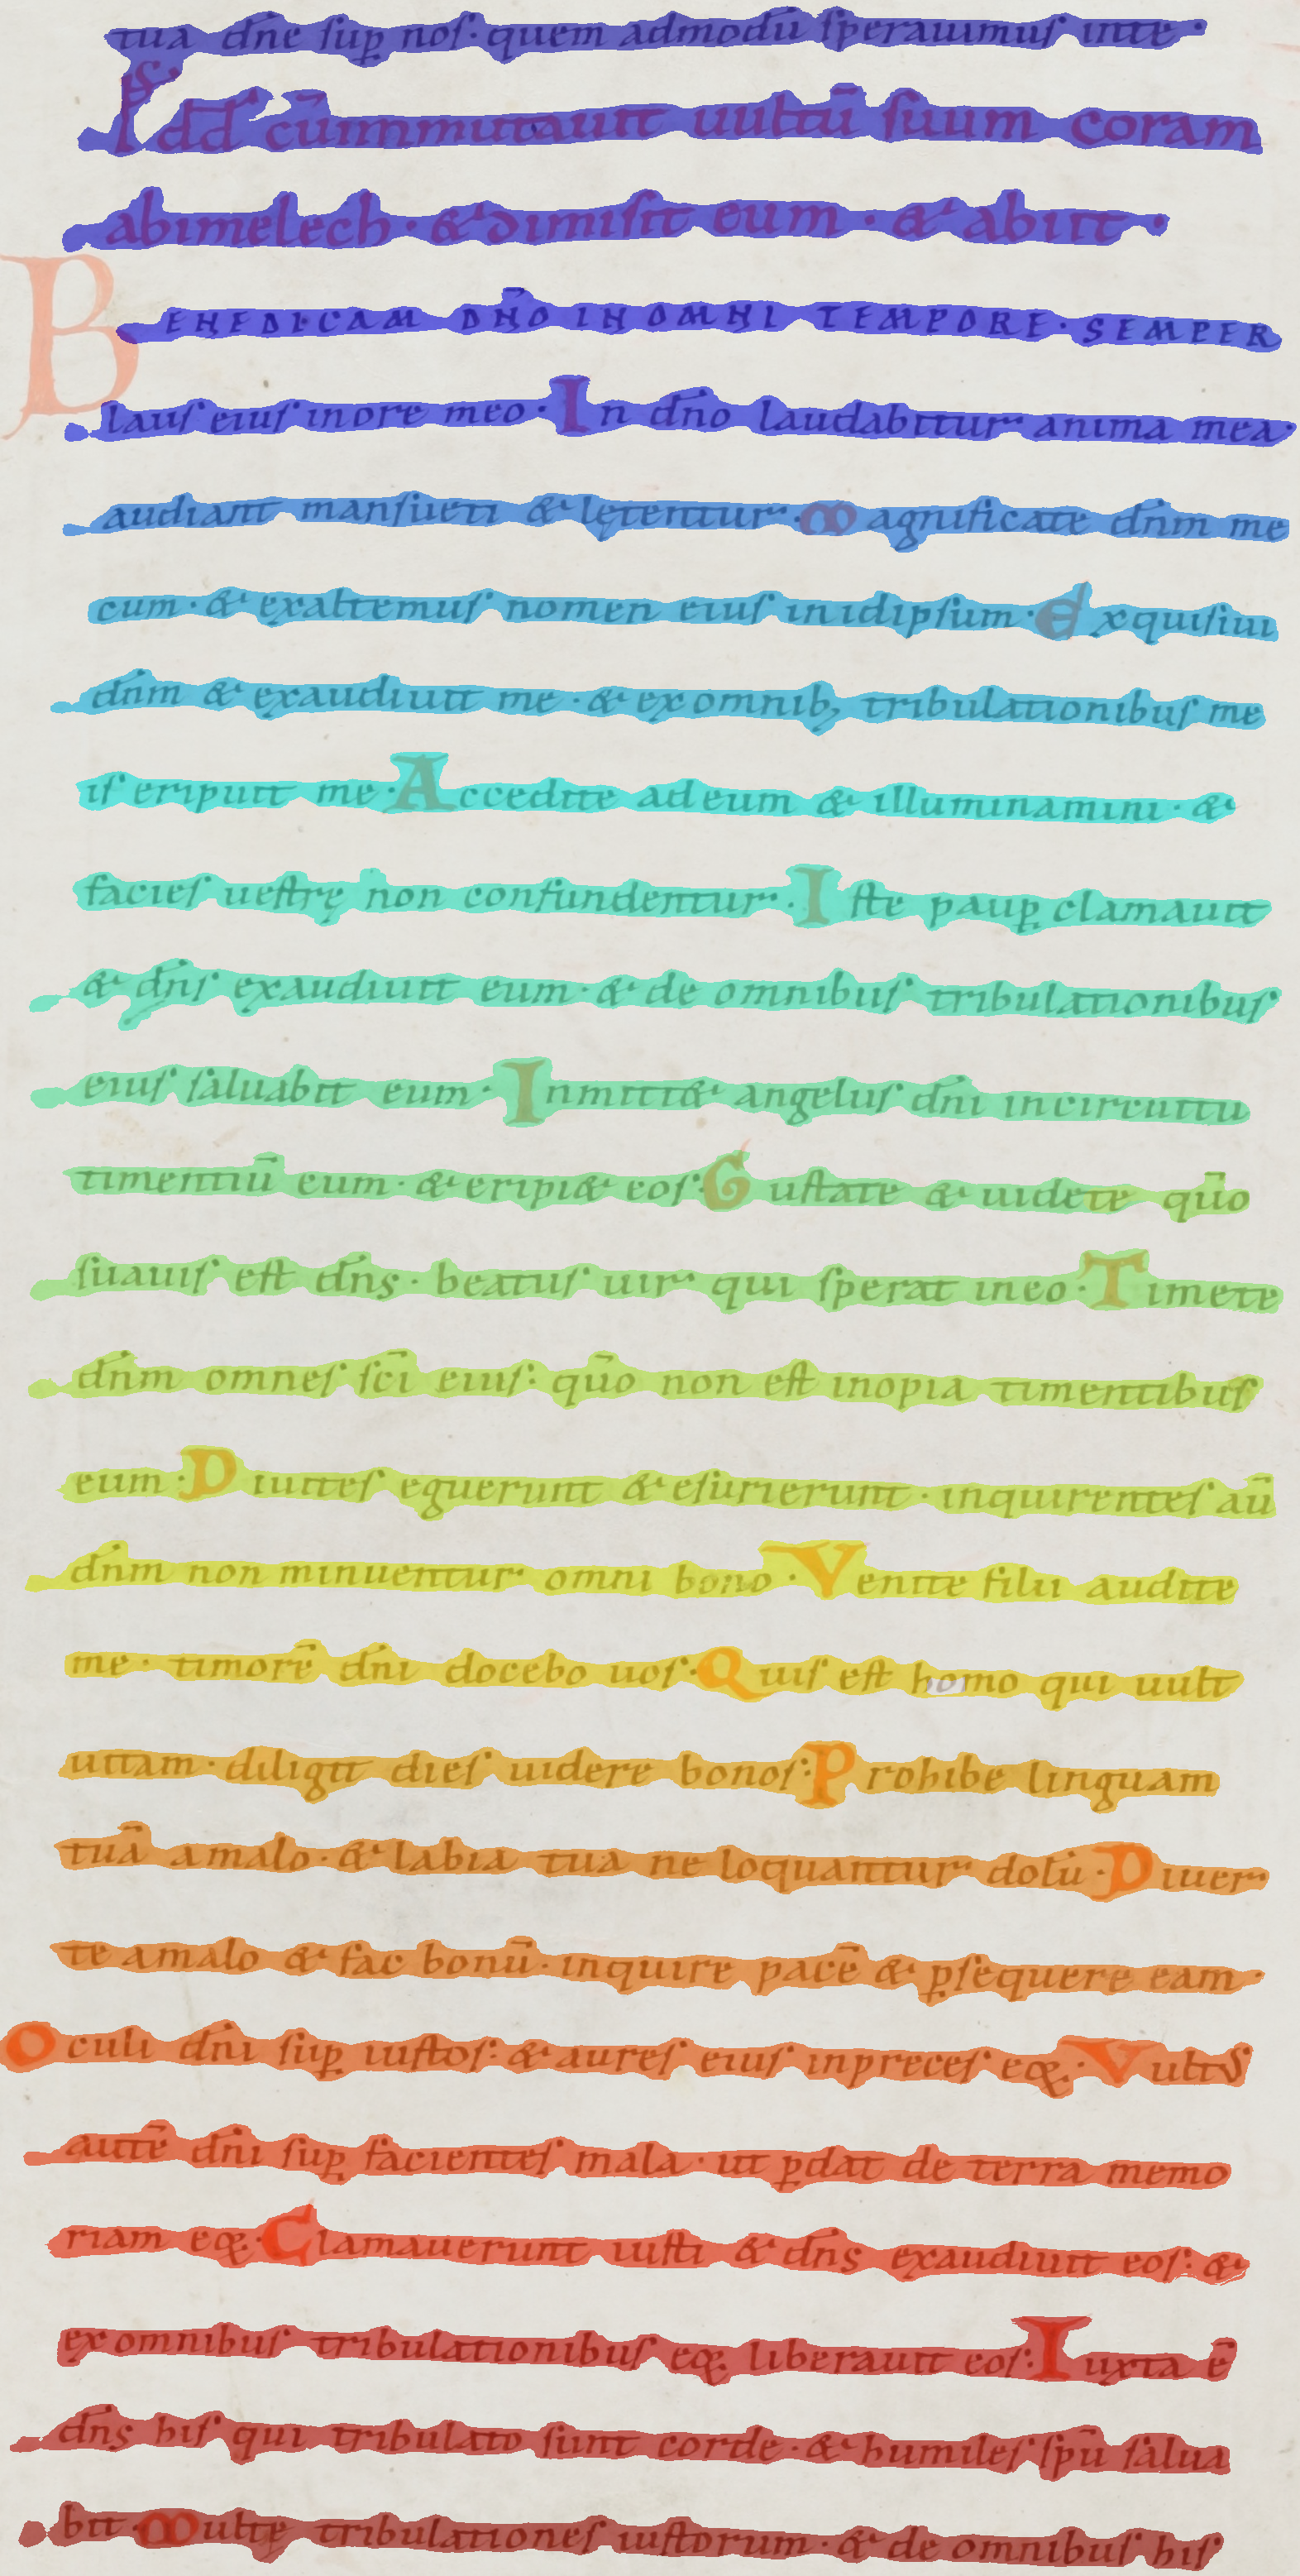 tua dn̄e sup̲ nos · quem admodū sperauimus inte ·
Ps dd̄ cūinmutauit uultū suum coram
abimelech · & dimisit eum · & abiit ·
BENEDICAM DN̄O IN OMNI TEMPORE · SEMPER
laus eius inore meo · In dn̄o laudabitur anima mea ·
audiant mansueti & lętentur · Magnificate dn̄m me
cum · & exaltemus nomen eius inidipsum · Exquisiui
dn̄m & exaudiuit me · & ex omnib; tribulationibus me
is eripuit me · Accedite ad eum & illuminamini · &
facies uestrę non confundentur · Iste paup̲ clamauit
& dn̄s exaudiuit eum · & de omnibus tribulationibus
eius saluabit eum · Inmitt& angelus dn̄i incircuitu
timentiū eum · & eripi& eos · Gustate & uidete qūo
suauis est dn̄s · beatus uir qui sperat ineo · Timete
dn̄m omnes sc̄i eius : qūo non est inopia timentibus
eum · Diuites eguerunt & esurierunt · inquirentes aū
dn̄m non minuentur omni bono · Venite filii audite
me · timorē dn̄i docebo uos · Quis est homo qui uult
uitam · diligit dies uidere bonos : Prohibe linguam
tuā amalo · & labia tua ne loquantur dolū · Diuer
te amalo & fac bonū · inquire pacē & p̲sequere eam ·
Oculi dn̄i sup̲ iustos : & aures eius inpreces eoꝝ · Vultus
autē dn̄i sup̲ facientes mala · ut p̲dat de terra memo
riam eoꝝ · Clamauerunt iusti & dn̄s exaudiuit eos : &
ex omnibus tribulationibus eoꝝ liberauit eos : Iuxta ē
dn̄s his qui tribulato sunt corde · & humiles sp̄u salua
bit · Multę tribulationes iustorum · & de omnibus his